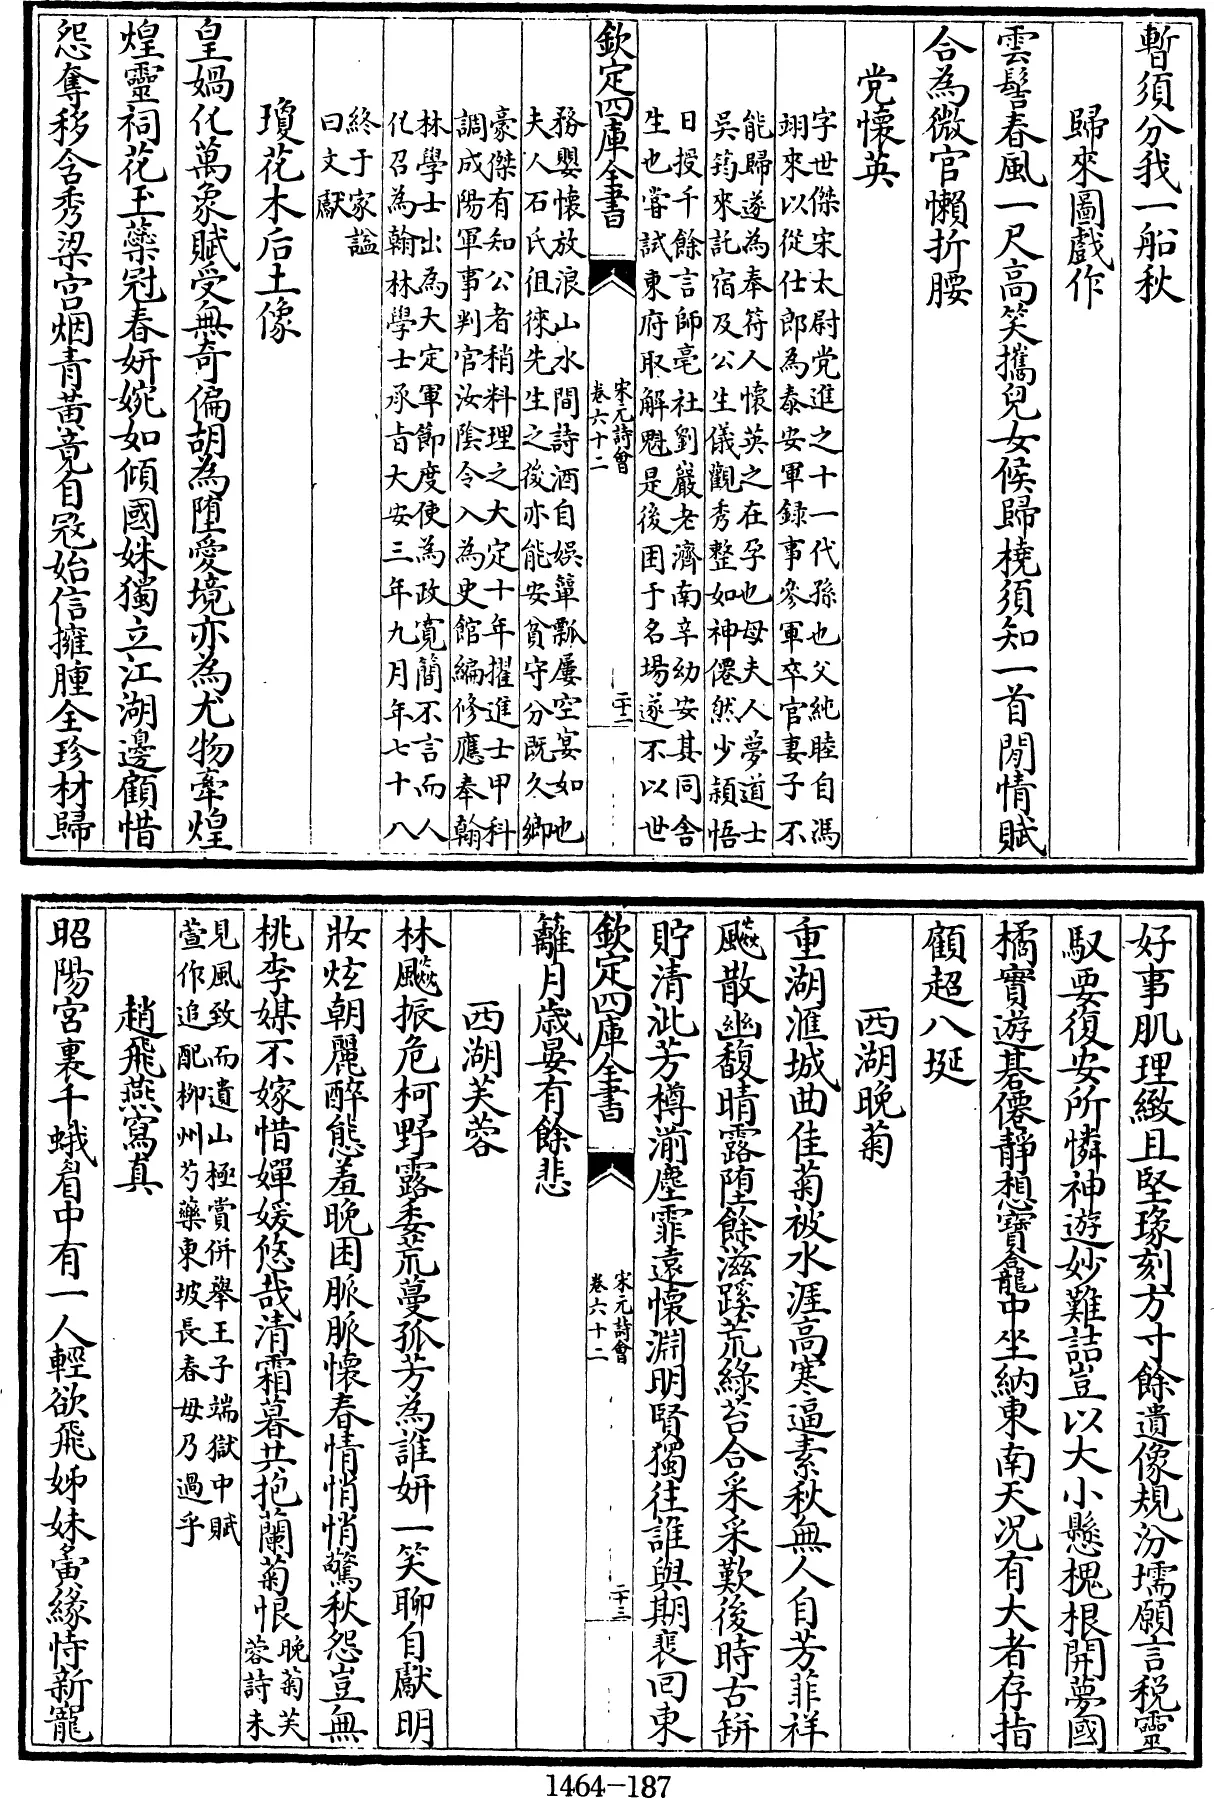 暫須分我一船秋
歸來圖戲作
雲髻春風一尺高笑攜兒女候歸橈須知一首閒情賦
合為微官懶折腰
党懷英
字世傑宋太尉党進之十一代孫也父純睦自馮
翊來以從仕郎為泰安軍録事參軍卒官妻子不
能歸遂為奉符人懷英之在孕也母夫人夢道士
吳筠來託宿及公生儀觀秀整如神僊然少穎悟
日授千餘言師亳社劉巖老濟南辛幼安其同舍
生也嘗試東府取解魁是後困于名場遂不以世
欽定四庫全書
宋元詩會
卷六十二
二十二
務嬰懷放浪山水間詩酒自娯簞瓢屢空宴如也
夫人石氏徂徠先生之後亦能安貧守分既久鄉
豪傑有知公者稍料理之大定十年擢進士甲科
調成陽軍事判官汝陰令入為史館編修應奉翰
林學士出為大定軍節度使為政寛簡不言而人
化召為翰林學士承旨大安三年九月年七十八
終于家謚
曰文獻
瓊花木后土像
皇媧化萬象賦受無奇偏胡為墮愛境亦為尤物牽煌
煌靈祠花玉蘂冠春妍婉如傾國姝獨立江湖邊顧惜
怨奪移含秀梁宮烟青黃竟自寇始信擁腫全珍材歸
好事肌理緻且堅琢刻方寸餘遺像規汾壖願言税靈
馭要復安所憐神遊妙難詰豈以大小懸槐根開夢國
橘實遊碁僊靜想寶龕中坐納東南天况有大者存指
顧超八埏
西湖晚菊
重湖滙城曲佳菊被水涯高寒逼素秋無人自芳菲祥
飇散幽馥晴露墮餘滋蹊荒綠苔合采采歎後時古缾
貯清泚芳樽湔塵霏遠懷淵明賢獨往誰與期裴回東
欽定四庫全書
宋元詩會
卷六十二
二十三
籬月歲晏有餘悲
西湖芙蓉
林飇振危柯野露委荒蔓孤芳為誰妍一笑聊自獻明
妝炫朝麗醉態羞晚困脈脈懷春情悄悄驚秋怨豈無
桃李媒不嫁惜嬋媛悠哉清霜暮共抱蘭菊恨
晚菊芙
蓉詩未
見風致而遺山極賞併舉王子端獄中賦
萱作追配柳州芍藥東坡長春毋乃過乎
趙飛燕寫真
昭陽宮裏千蛾眉中有一人輕欲飛姊妹夤緣恃新寵
1464-187